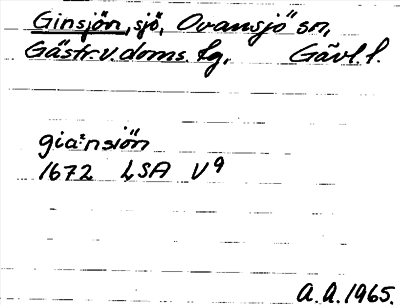 Ginsjön, sjö, Ovansjö sn,
Gästr. v. doms. lg, Gävl. l.
gia:nsiön
1672 LSA V9
A.A. 1965.